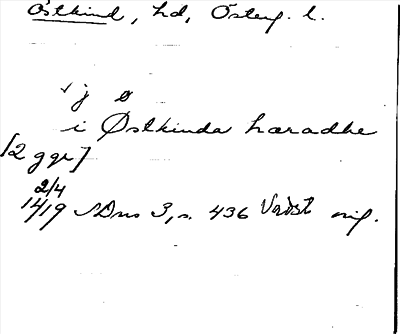 Östkind, hd, Österg. l.
i Østkinda hæradhe
[2 ggr]
2/4
1419 SDns 3, s. 436 Vadst orig.